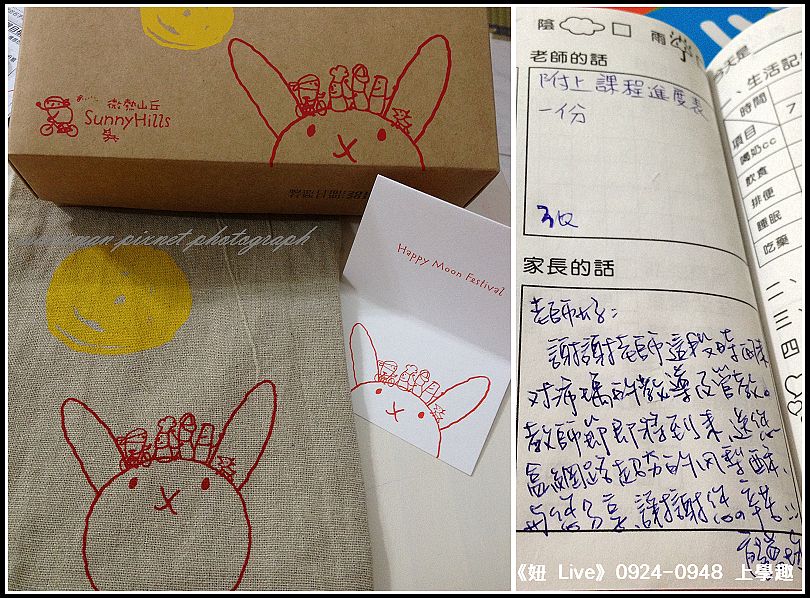 微熱山丘
SunnyHills
pixnet photograph
Happy Moon Festival
陰
雨
老師的話
附上課程進度表
一份
家長的話
老師好：
謝謝老師這段時間來
对
的教導及管教。
教師節即將到來，送您一
盒網路超夯的鳳梨酥，
与您分享，謝謝您の辛苦
今天是
二、生活記
時間
7
項目
喝奶cc
飲食
排便
睡眠
吃藥
《妞 Live》0924-0948 上學趣